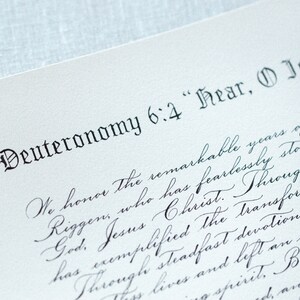 Deuteronomy 6:4 "Hear, O
We honor the remarkable years
Riggen, who has fearlessly
God, Jesus Christ. Through
has exemplified the
Through steadfast devotion
lives and left an
spirit.